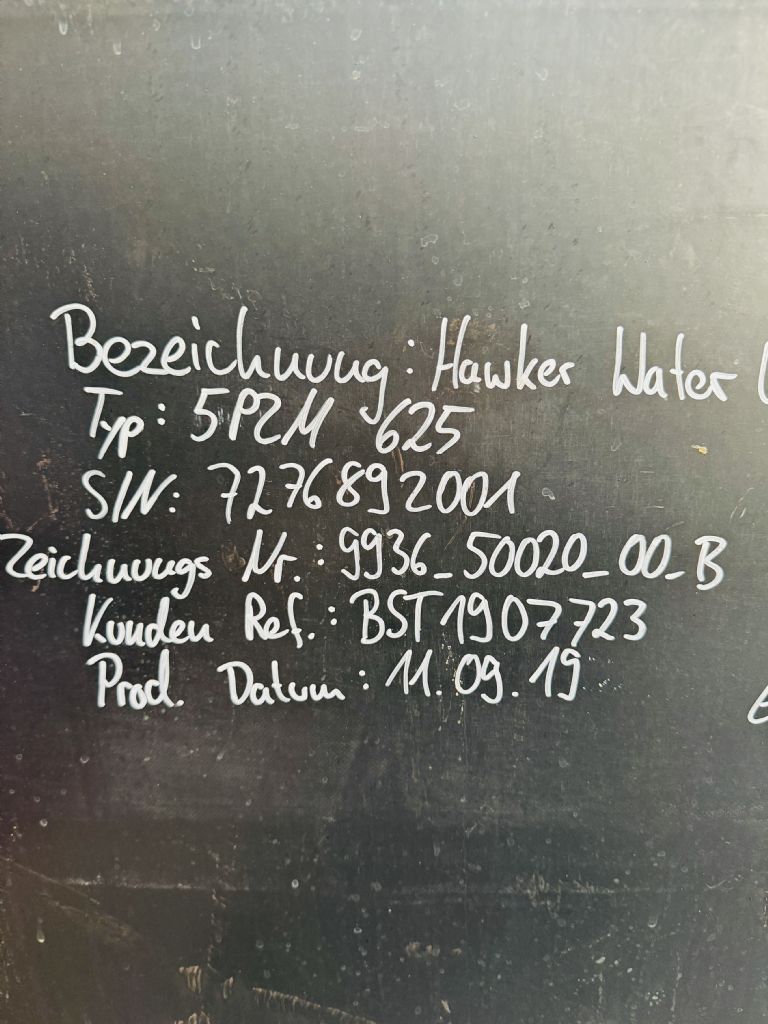 Bezeichnung: Hawker Water
Typ: 5PZM 625
S/N: 7276892001
Zeichnungs Nr.: 9936_50020_00_B
Kunden Ref.: BST1907723
Prod. Datum: 11.09.19